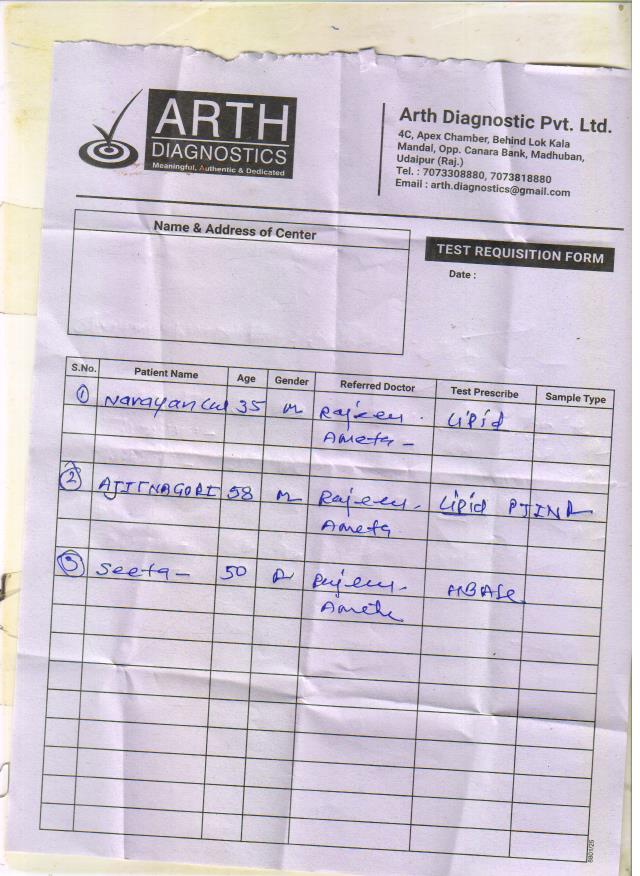 ARTH
DIAGNOSTICS
Meaningful, Authentic & Dedicated
Arth Diagnostic Pvt. Ltd.
4C, Apex Chamber, Behind Lok Kala
Mandal, Opp. Canara Bank, Madhuban,
Udaipur (Raj.)
Tel. : 7073308880, 7073818880
Email : arth.diagnostics@gmail.com
Name & Address of Center
TEST REQUISITION FORM
Date :
S.No. Patient Name Age Gender Referred Doctor Test Prescribe Sample Type
1 Narayan Lal 35 M Rajeev Lipid
Ameta
2 AJITNAGORI 58 M Rajeev Lipid PTINR
Ameta
3 Seeta 50 Rajeev HBA1c
Ameta